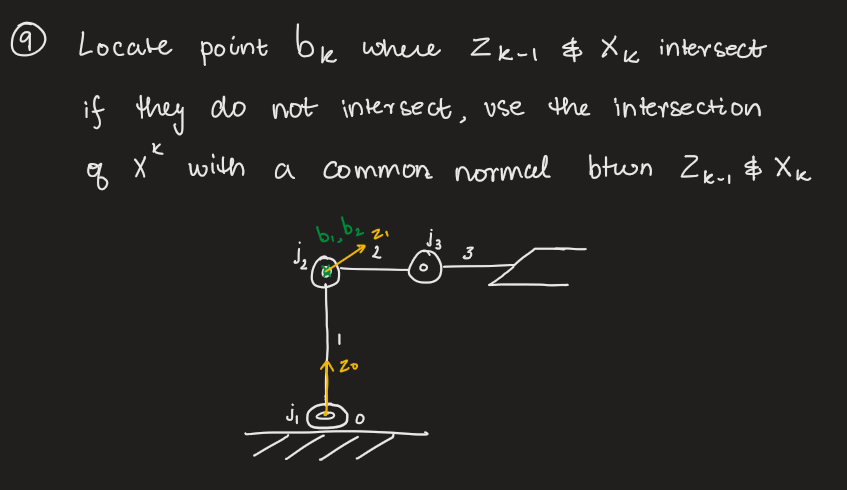 9 Locate point bk where Zk-1 & Xk intersect
if they do not intersect, use the intersection
of X^k with a common normal btwn Zk-1 & Xk
b1, b2 z1
j2 2 j3 3
1
z0
j1 0